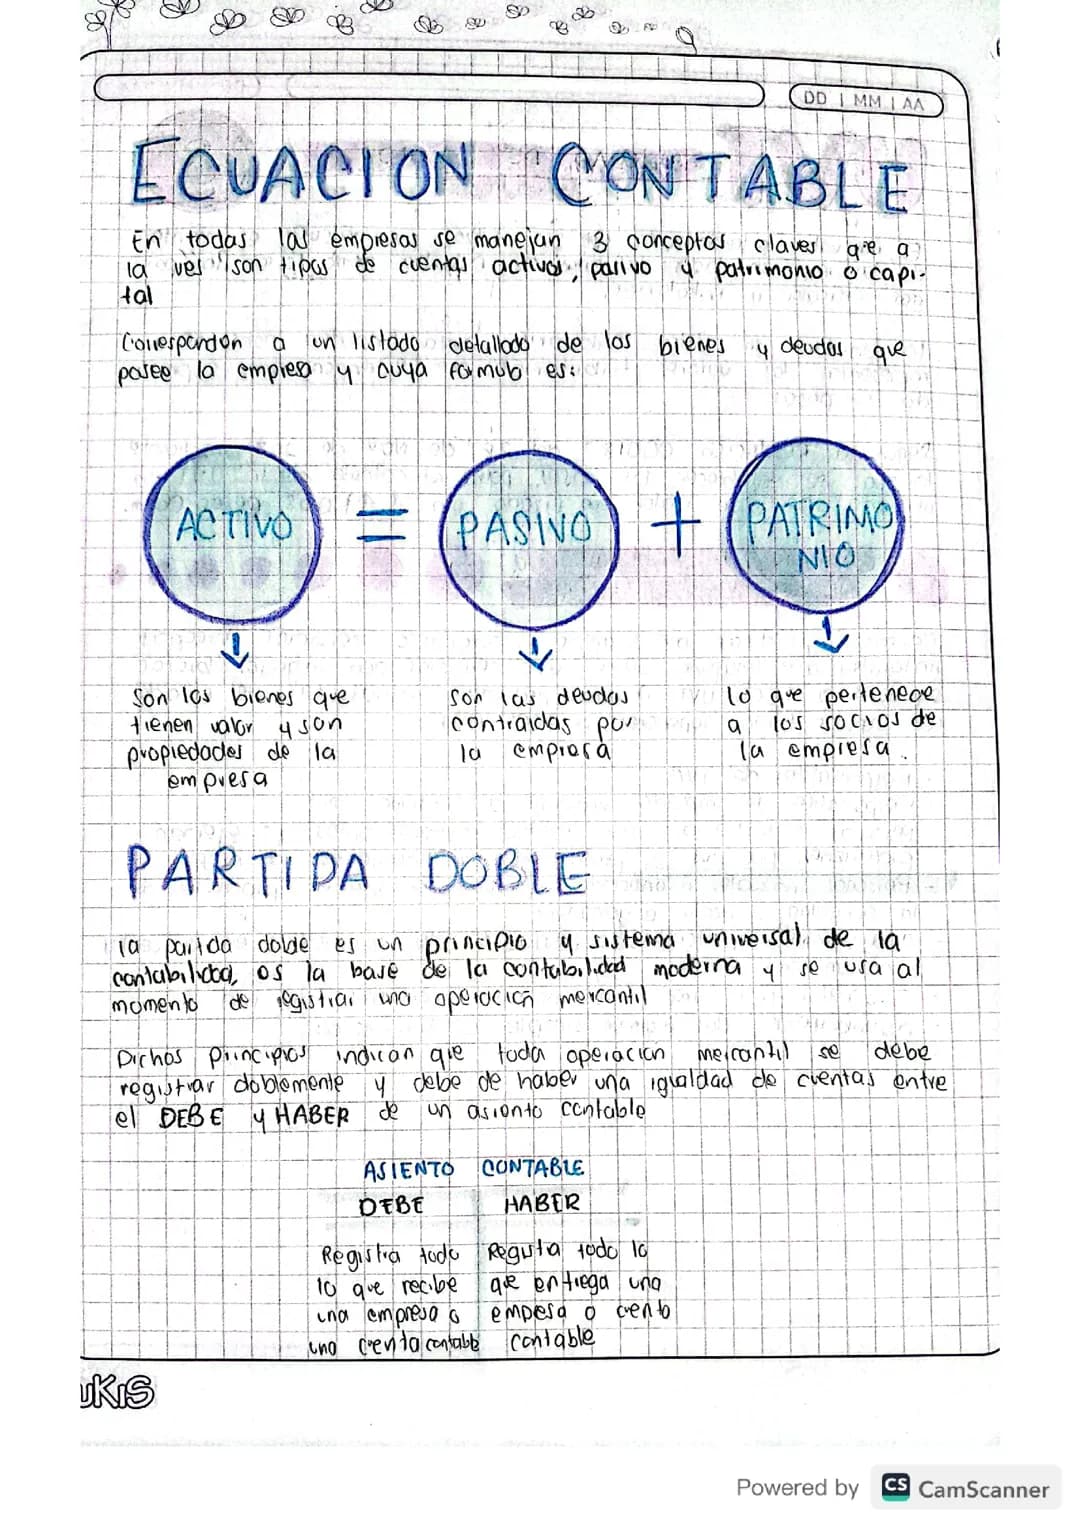 DD | MM | AA
ECUACION CONTABLE
En todas las empresas se manejan 3 conceptos claves que a
la ves son tipos de cuentas activos, pasivo y patrimonio o capi-
tal
Corresponden a un listado detallado de los bienes y deudas que
posee la empresa y cuya formula es:
ACTIVO = PASIVO + PATRIMO
NIO
Son los bienes que
tienen valor y son
propiedades de la
empresa
Son las deudas
contraidas por
la empresa
lo que pertenece
a los socios de
la empresa.
PARTIDA DOBLE
la partida doble es un principio y sistema universal de la
contabilidad, es la base de la contabilidad moderna y se usa al
momento de registrar una operación mercantil
Dichos principios indican que toda operacion mercantil se debe
registrar doblemente y debe de haber una igualdad de cuentas entre
el DEBE y HABER de un asiento contable
ASIENTO CONTABLE
DEBE HABER
Registra todo
lo que recibe
una empresa o
una cuenta contable
Registra todo lo
que entrega una
empesa o cuenta
contable
UKIS
Powered by CS CamScanner